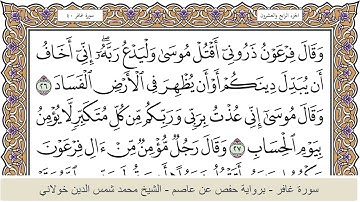 سورة غافر ٤٠
الجزء الرابع والعشرون
وَقَالَ فِرْعَوْنُ ذَرُونِىٓ أَقْتُلْ مُوسَىٰ وَلْيَدْعُ رَبَّهُۥٓ ۖ إِنِّىٓ أَخَافُ
أَن يُبَدِّلَ دِينَكُمْ أَوْ أَن يُظْهِرَ فِى ٱلْأَرْضِ ٱلْفَسَادَ ٢٦
وَقَالَ مُوسَىٰٓ إِنِّى عُذْتُ بِرَبِّى وَرَبِّكُم مِّن كُلِّ مُتَكَبِّرٍ لَّا يُؤْمِنُ
بِيَوْمِ ٱلْحِسَابِ ٢٧ وَقَالَ رَجُلٌ مُّؤْمِنٌ مِّنْ ءَالِ فِرْعَوْنَ
سورة غافر - برواية حفص عن عاصم - الشيخ محمد شمس الدين خولاني